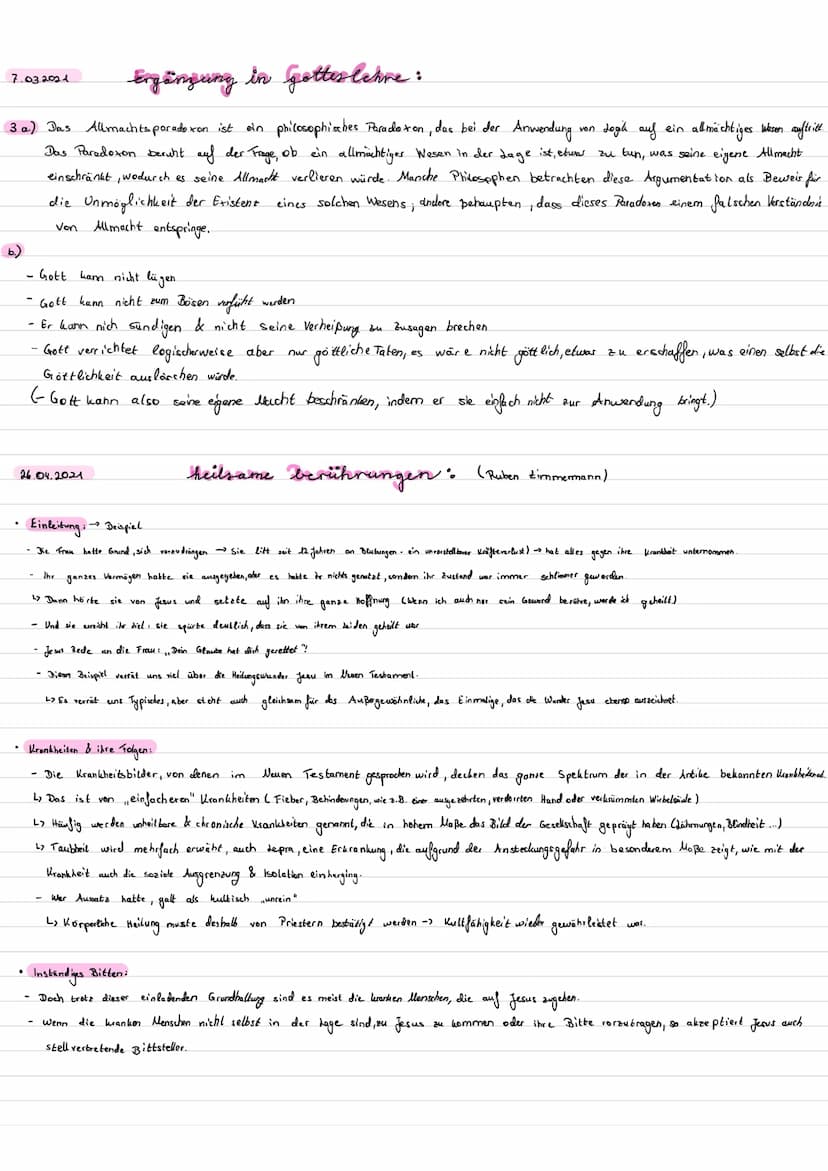 7.03.2021 Ergänzung in Gotteslehre:
3 a) Das Allmachtsparadoxon ist ein philosophisches Paradoxon, das bei der Anwendung von Logik auf ein allmächtiges Wesen auftritt.
Das Paradoxon beruht auf der Frage, ob ein allmächtiges Wesen in der Lage ist, etwas zu tun, was seine eigene Allmacht
einschränkt, wodurch es seine Allmacht verlieren würde. Manche Philosophen betrachten diese Argumentation als Beweis für
die Unmöglichkeit der Existenz eines solchen Wesens; andere behaupten, dass dieses Paradoxon einem falschen Verständnis
von Allmacht entspringe.
b)
- Gott kann nicht lügen
- Gott kann nicht zum Bösen verführt werden
- Er kann nich sündigen & nicht seine Verheißung zu Zusagen brechen
- Gott verrichtet logischerweise aber nur göttliche Taten, es wäre nicht göttlich, etwas zu erschaffen, was einen selbst die
Göttlichkeit auslöschen würde.
(- Gott kann also seine eigene Macht beschränken, indem er sie einfach nicht zur Anwendung bringt.)
26.04.2021 heilsame berührungen: (Ruben Zimmermann)
• Einleitung: → Beispiel
- Die Frau hatte Grund, sich vorzudrängen → Sie litt seit 12 Jahren an Blutungen - ein unvorstellbarer Kräfteverlust) → hat alles gegen ihre Krankheit unternommen.
- Ihr ganzes Vermögen hatte sie ausgegeben, aber es hatte ihr nichts genutzt, sondern ihr Zustand war immer schlimmer geworden.
↳ Dann hörte sie von Jesus und setzte auf ihn ihre ganze Hoffnung (Wenn ich auch nur sein Gewand berühre, werde ich geheilt)
- Und sie erreicht ihr Ziel: sie spürte deutlich, dass sie von ihrem Leiden geheilt war
- Jesus Rede an die Frau: „Dein Glaube hat dich gerettet"!
- Dieses Beispiel verrät uns viel über die Heilungswunder Jesu im Neuen Testament.
↳ Es verrät uns Typisches, aber steht auch gleichsam für das Außergewöhnliche, das Einmalige, das die Wunder Jesu ebenso auszeichnet.
• Krankheiten & ihre Folgen:
- Die Krankheitsbilder, von denen im Neuen Testament gesprochen wird, decken das ganze Spektrum der in der Antike bekannten Krankheiten
↳ Das ist von „einfacheren" Krankheiten (Fieber, Behinderungen, wie z.B. einer ausgezehrten, verdorrten Hand oder verkrümmten Wirbelsäule)
↳ Häufig werden unheilbare & chronische Krankheiten genannt, die in hohem Maße das Bild der Gesellschaft geprägt haben (Lähmungen, Blindheit ...)
↳ Taubheit wird mehrfach erwäht, auch Lepra, eine Erkrankung, die aufgrund der Ansteckungsgefahr in besonderem Maße zeigt, wie mit der
Krankheit auch die soziale Ausgrenzung & Isolation einherging.
- Wer Aussatz hatte, galt als kultisch „unrein"
↳ Körperliche Heilung musste deshalb von Priestern bestätigt werden -> Kultfähigkeit wieder gewährleistet war.
• Inständiges Bitten:
- Doch trotz dieser einladenden Grundhaltung sind es meist die kranken Menschen, die auf Jesus zugehen.
- Wenn die kranken Menschen nicht selbst in der Lage sind, zu Jesus zu kommen oder ihre Bitte vorzutragen, so akzeptiert Jesus auch
stellvertretende Bittsteller.